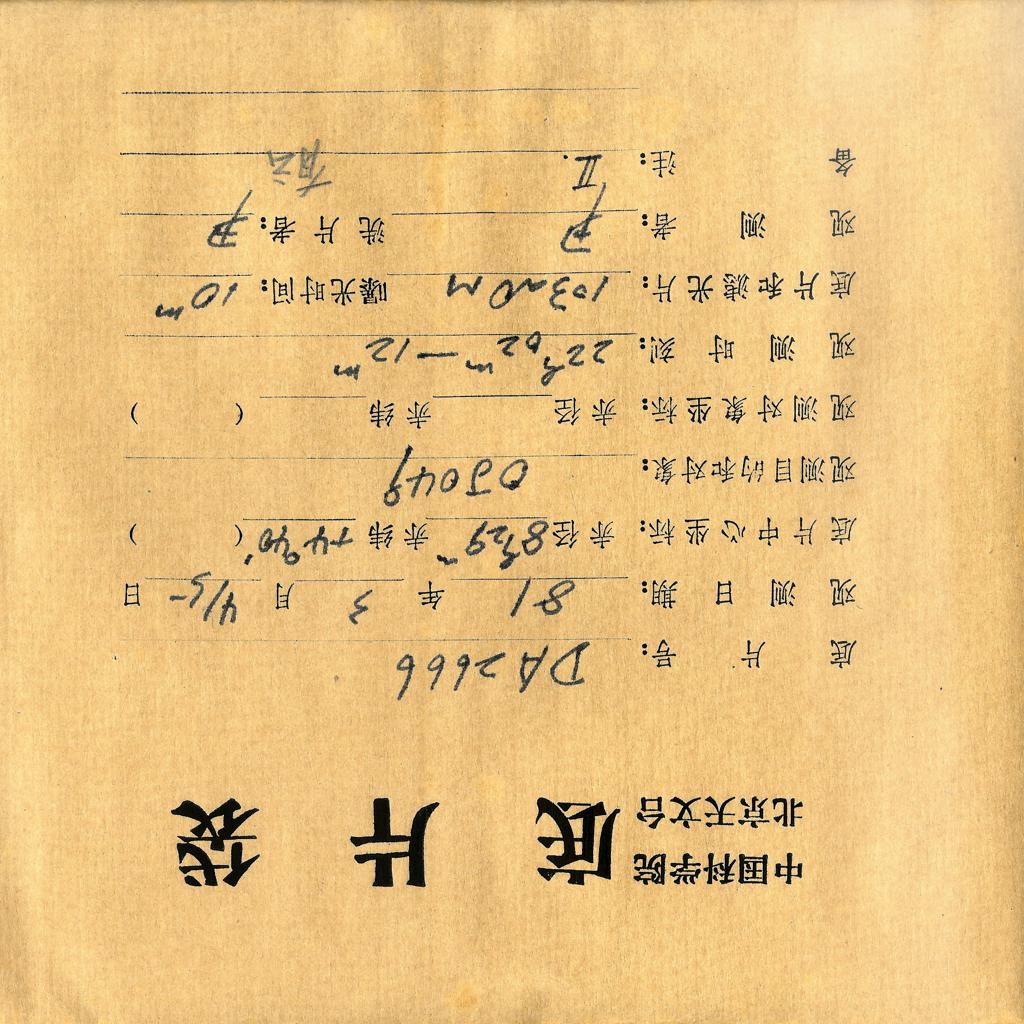 中国科学院
北京天文台
底片袋
底片号: DA2666
观测日期: 81年3月4/5日
底片中心坐标: 赤径8h29m赤纬+4°40′( )
观测目的和对象: OJ049
观测对象坐标: 赤径 赤纬 ( )
观测时刻: 22h02m—12m
底片和滤光片: 103aO M 曝光时间: 10m
观测者: 尹 洗片者: 尹
备注: II. 有云